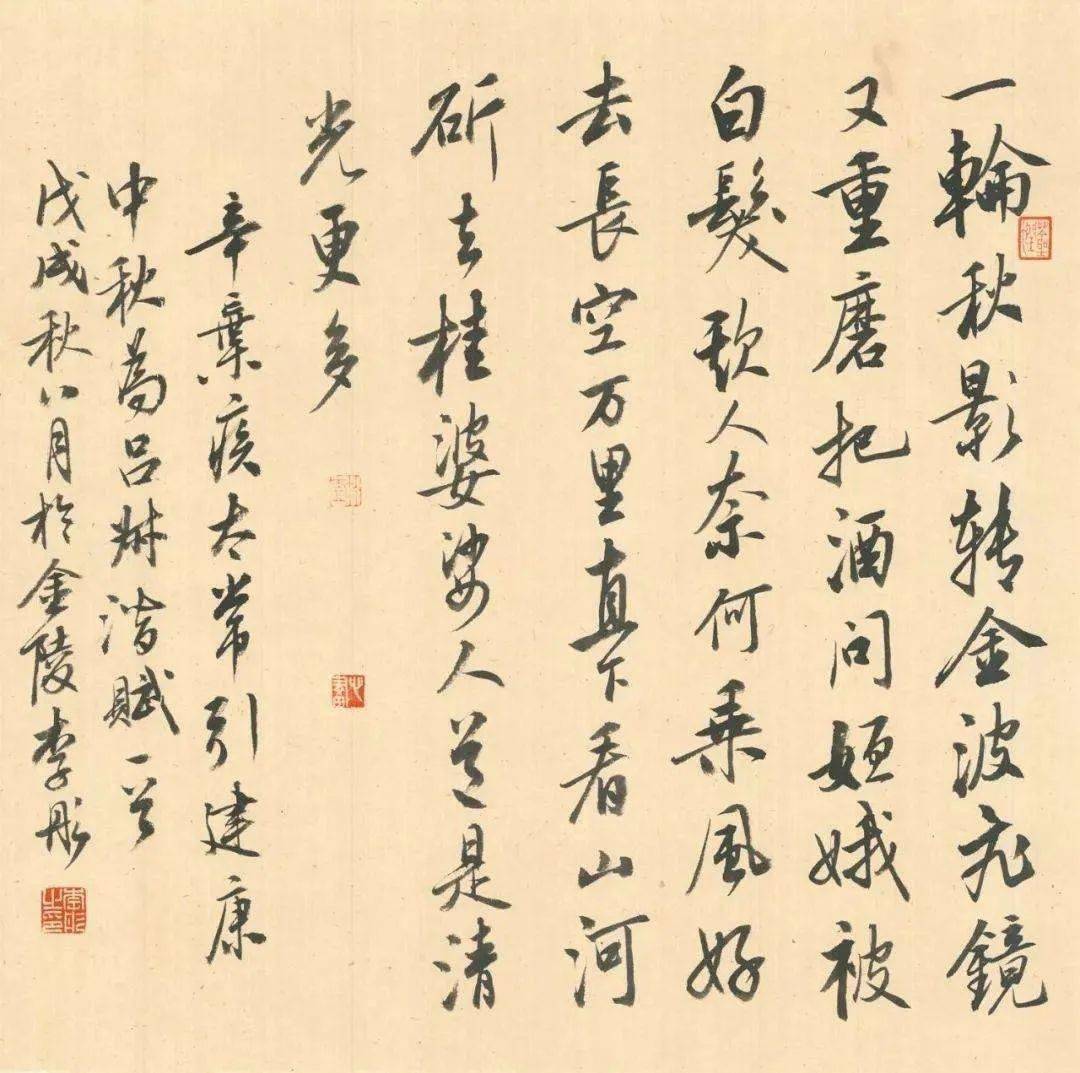 一輪秋影转金波飛鏡
又重磨把酒问姮娥被
白髮欺人奈何乘風好
去長空万里直下看山河
斫去桂婆娑人道是清
光更多
辛棄疾太常引建康
中秋為吕叔潛賦一首
戊戌秋八月於金陵李彤
李彤之印